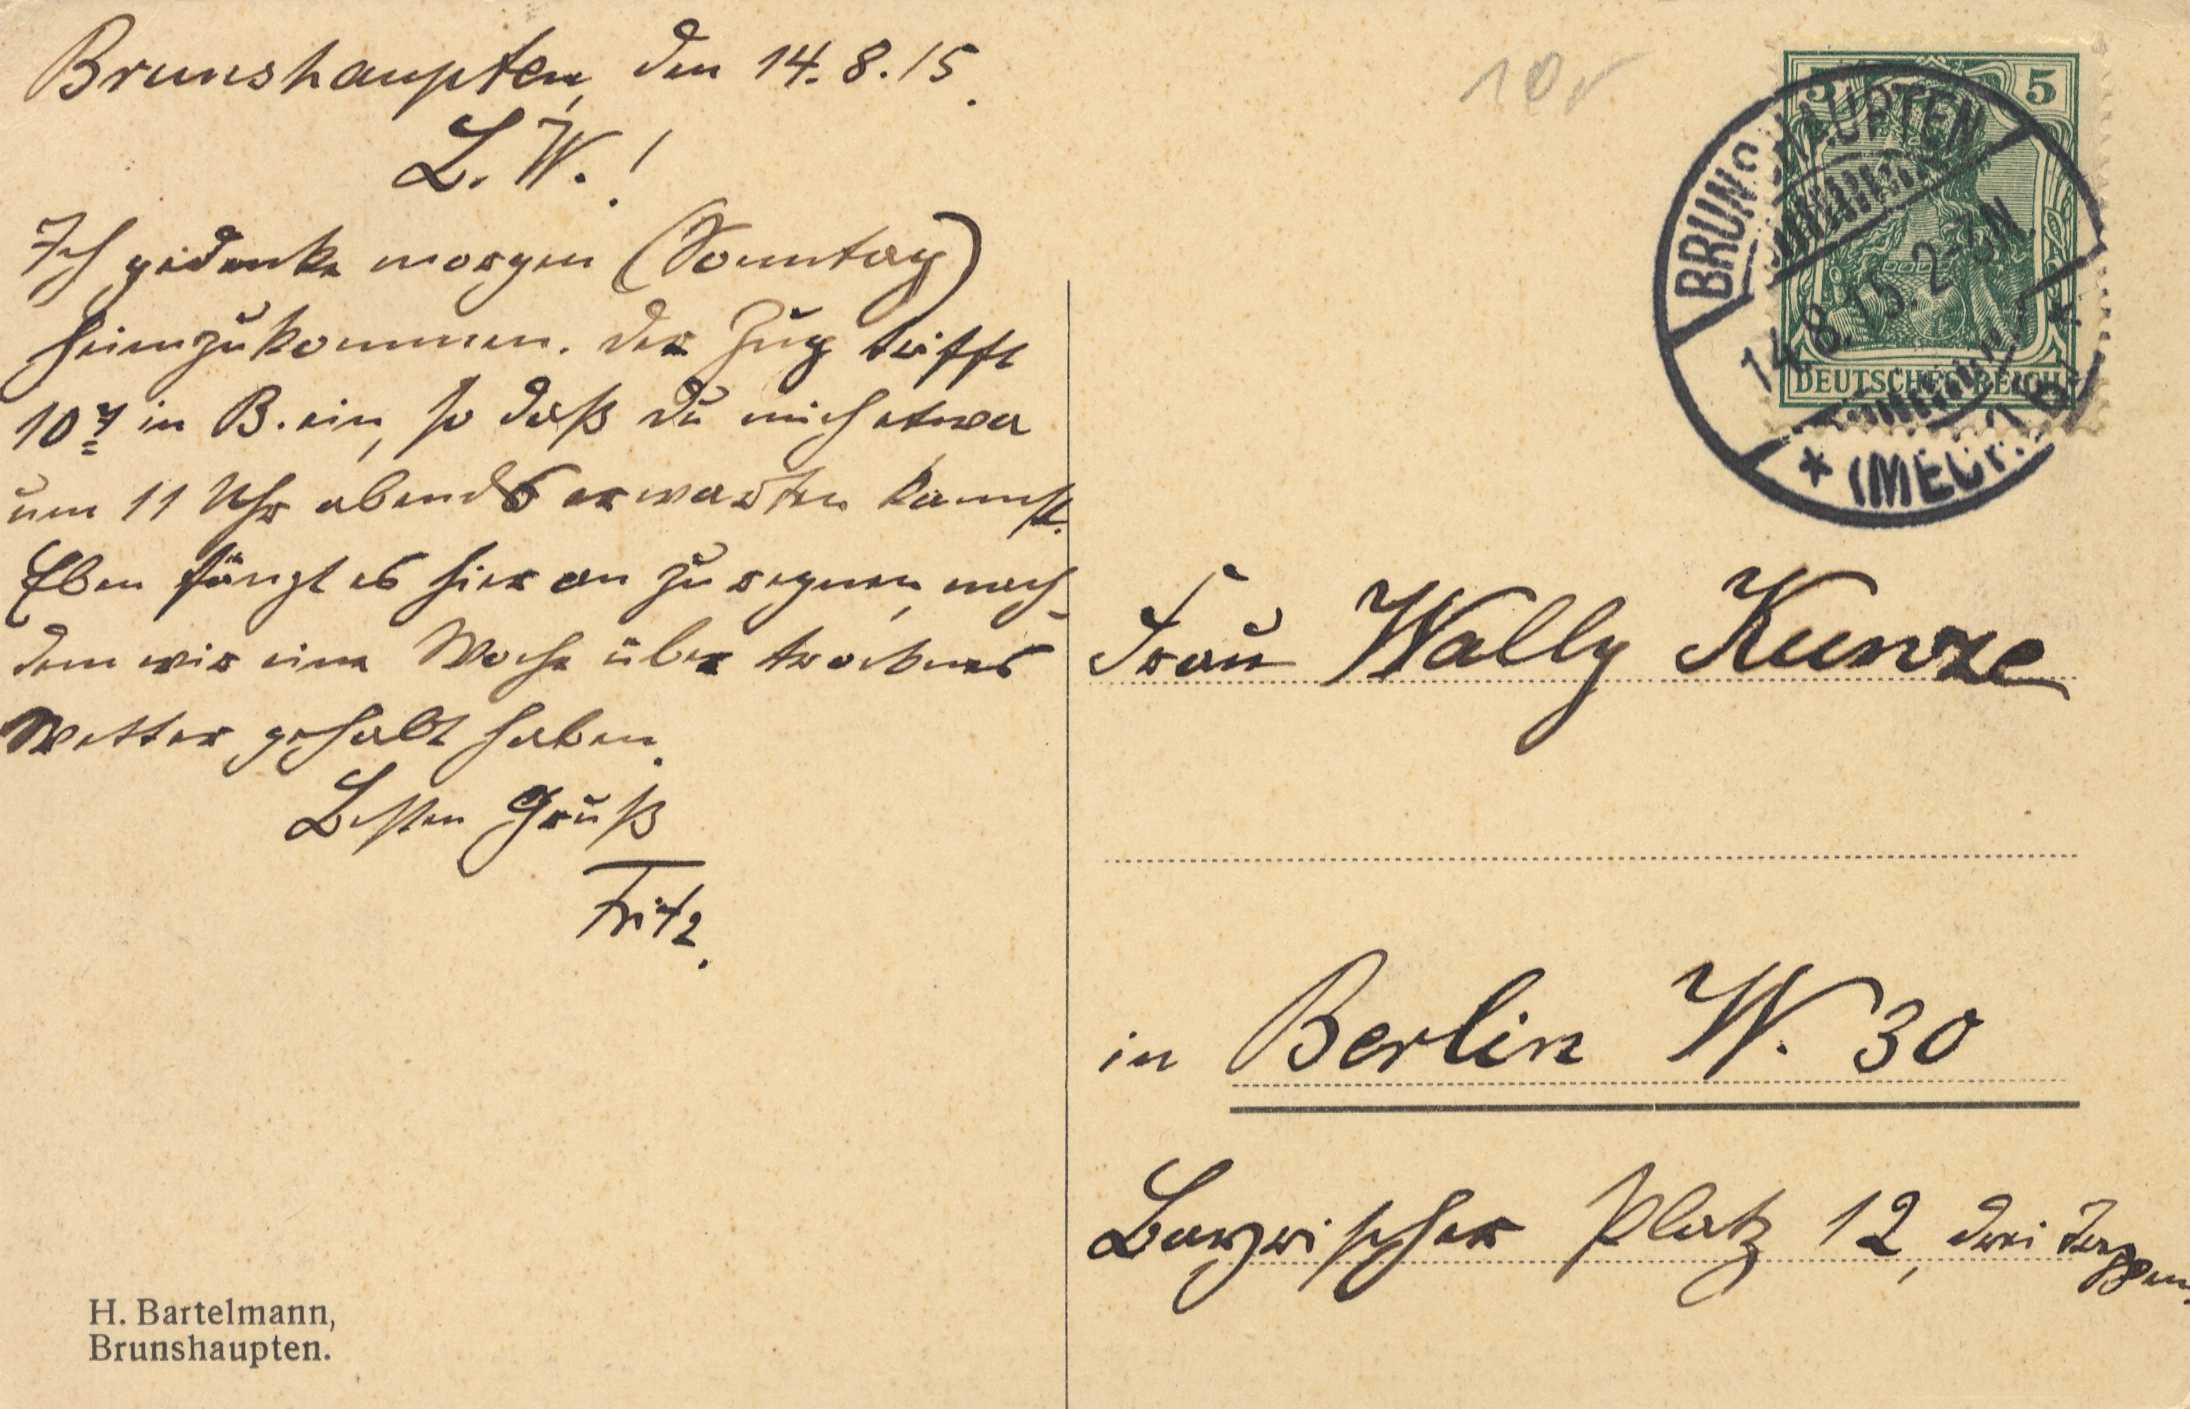 Brunshaupten, den 14.8.15.
L. W.!
Ich gedenke morgen (Sonntag)
heimzukommen. Der Zug trifft
10⁷ in B. ein, so daß du mich etwa
um 11 Uhr abends erwarten kannst.
Eben fängt es hier an zu regnen, nach-
dem wir eine Woche über trocknes
Wetter gehabt haben.
Besten Gruß
Fritz.
H. Bartelmann,
Brunshaupten.
10
5 5
DEUTSCHES REICH
BRUNSHAUPTEN
14.8.15. 2-3N.
* (MECK.)
Frau Wally Kunze
in Berlin W. 30
Barzwischer Platz 12, drei Treppen.